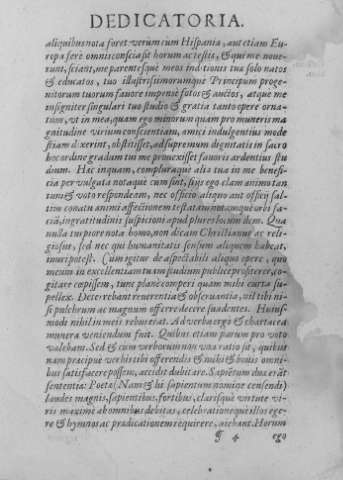 DEDICATORIA.
aliquibus nota foret verùm cùm Hispania, aut etiam Eu-
ropa ferè omnis conscia sit horum ac testis, & qui me noue-
runt, sciant, me parentesque meos in ditionis tuæ solo natos
& educatos, tuo illustrissimorumque Principum proge-
nitorum tuorum fauore impensè fotos & auctos, atque me
insigniter singulari tuo studio & gratia tantopere orna-
tum, vt in mea, quam ego minorum quam pro muneris ma
gnitudine virium conscientiam, amici indulgentius mode
stiam dixerint, obstitisset, ad supremum dignitatis in sacro
hoc ordine gradum tui me prouexisset fauoris ardentius stu
dium. Hac inquam, compluraque alia tua in me benefi-
cia peruulgata notaque cum sint, si ijs ego clam animo tan
tum & voto respondeam, nec officio aliquo aut officij sal-
tim conatu animi affectionem testatam in tam apparẽti fa-
ciã, ingratitudinis suspicioni apud plures locum dem. Qua
nulla turpior nota homo, non dicam Christianus ac reli-
giosus, sed nec qui humanitatis sensum aliquem habeat,
inuri potest. Cùm igitur de aspectabili aliquo opere, quo
meum in excellentiam tuam studium publicè profiterer, co-
gitare cœpissem, tunc planè comperi quàm mihi curta su-
pellex. Deterrebant reuerentia & obseruantia, vt tibi ni-
si pulchrum ac magnum offerre decere suadentes. Huius-
modi nihil in meis rebus erat. Ad verba ergo & chartacea
munera veniendum fuit. Quibus etiam parum pro voto
valebam. Sed & cùm verborum non vna ratio sit, quibus-
nam præcipuè verbis tibi offerendis & mihi & bonis omni-
bus satisfacere possem, accidit dubitare. Sapiẽtum dox erãt
sententiæ: Poetæ (Nam & hi sapientum nomine censendi)
laudes magnis, sapientibus, fortibus, clarisque virtute vi-
ris maximè ab omnibus debitas, celebrationeque illos ege-
re & hymnos ac prædicationem requirere, aiebant. Horum
¶ 4 ego